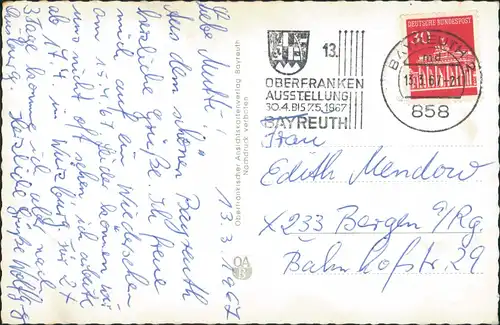 13.3.1967
Liebe Mutti!
Aus dem schönen Bayreuth
herzliche Grüße. Ich freue
mich auf ein Wiedersehen
am 15.4.67. Leider können wir
uns nicht oft sehen, ich arbeite
ab 17.4. in Würzburg für 2x
3 Tage, komme ich als nach
Herzliche Grüße
Oberfränkischer Ansichtskartenverlag Bayreuth
Nachdruck verboten
OA
B
13.
OBERFRANKEN
AUSSTELLUNG
30.4. BIS 7.5.1967
BAYREUTH
DEUTSCHE BUNDESPOST
30
858
Frau
Edith Mendow
X233 Bergen a/Rg.
Bahnhofstr. 29